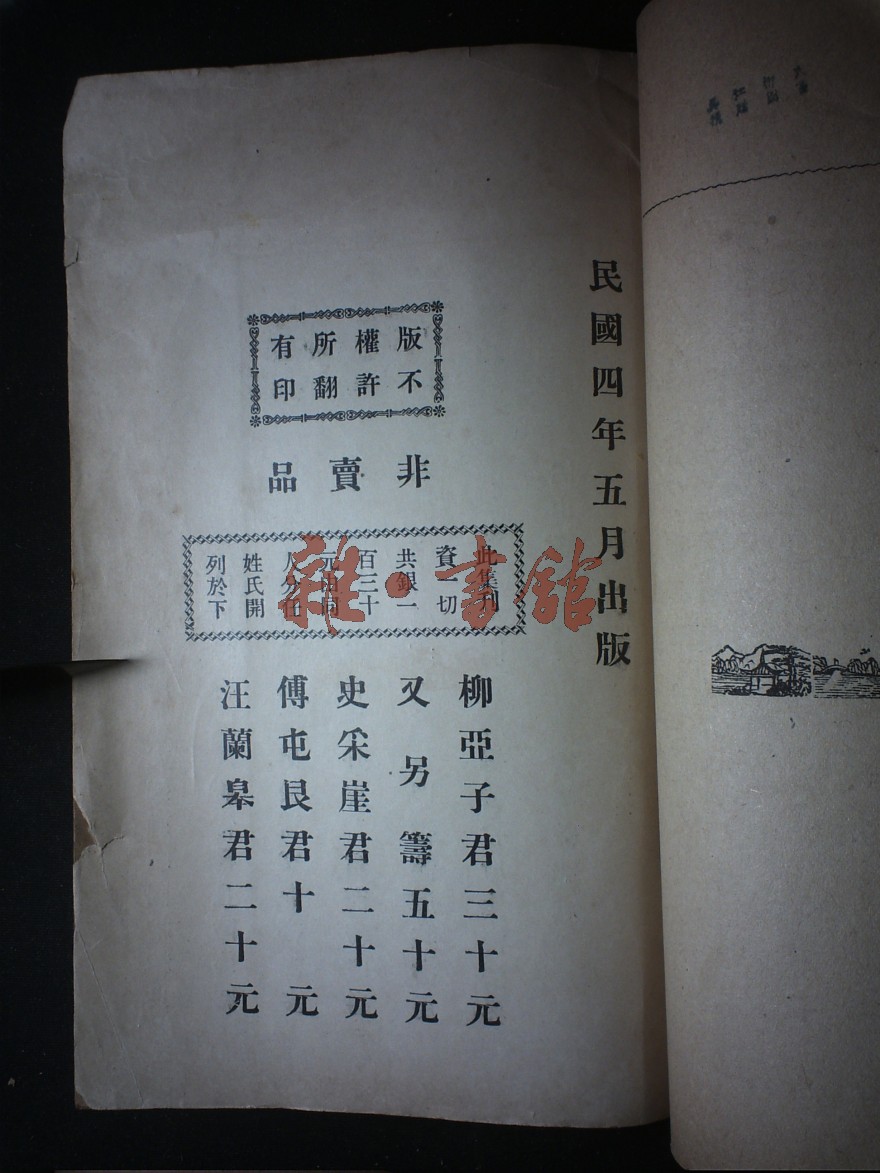 民國四年五月出版
版權所有
不許翻印
非賣品
此集刊
資一切
共銀一
百三十
元由同
人分任
姓氏開
列於下
柳亞子君三十元
又另籌五十元
史采崖君二十元
傅屯艮君十元
汪蘭皋君二十元
雜·書館